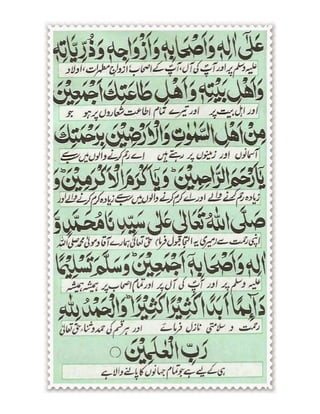 عَلٰٓى اٰلِهٖ وَاَصْحَابِهٖ وَاَزْوَاجِهٖ وَذُرِّيَّاتِهٖ
علیہ وسلم پر اور آپؐ کی آل، آپؐ کے اصحاب، ازواج مطہرات، اولاد
وَاَهْلِ بَيْتِهٖ وَاَهْلِ طَاعَتِكَ اَجْمَعِيْنَ
اور اہل بیت پر اور تیرے تمام اطاعت شعاروں پر ہو جو
مِنْ اَهْلِ السَّمٰوٰتِ وَالْاَرْضِيْنَ بِرَحْمَتِكَ
آسمانوں اور زمینوں پر رہتے ہیں اے رحم کرنے والوں میں سب سے
يَآ اَرْحَمَ الرَّاحِمِيْنَ وَيَآ اَكْرَمَ الْاَكْرَمِيْنَ وَ
زیادہ رحم کرنے والے اور اے کرم کرنے والوں میں سب سے زیادہ کرم کرنے والے اور
صَلَّى اللهُ تَعَالٰى عَلٰى سَيِّدِنَا مُحَمَّدٍ وَّ
اپنی رحمت سے (میری یہ التجا قبول فرما) حق تعالیٰ ہمارے آقا و مولیٰ محمد صلی اللہ
اٰلِهٖ وَاَصْحَابِهٖٓ اَجْمَعِيْنَ وَسَلَّمَ تَسْلِيْمًا
علیہ وسلم پر اور آپؐ کی آل پر اور تمام اصحاب پر ہمیشہ ہمیشہ
دَآئِمًا اَبَدًا كَثِيْرًا كَثِيْرًا وَالْحَمْدُ لِلّٰهِ
رحمت و سلامتی نازل فرمائے اور ہر قسم کی حمد و ثنا حق تعالیٰ
رَبِّ الْعٰلَمِيْنَ ○
ہی کے لیے ہے جو تمام جہانوں کا پالنے والا ہے